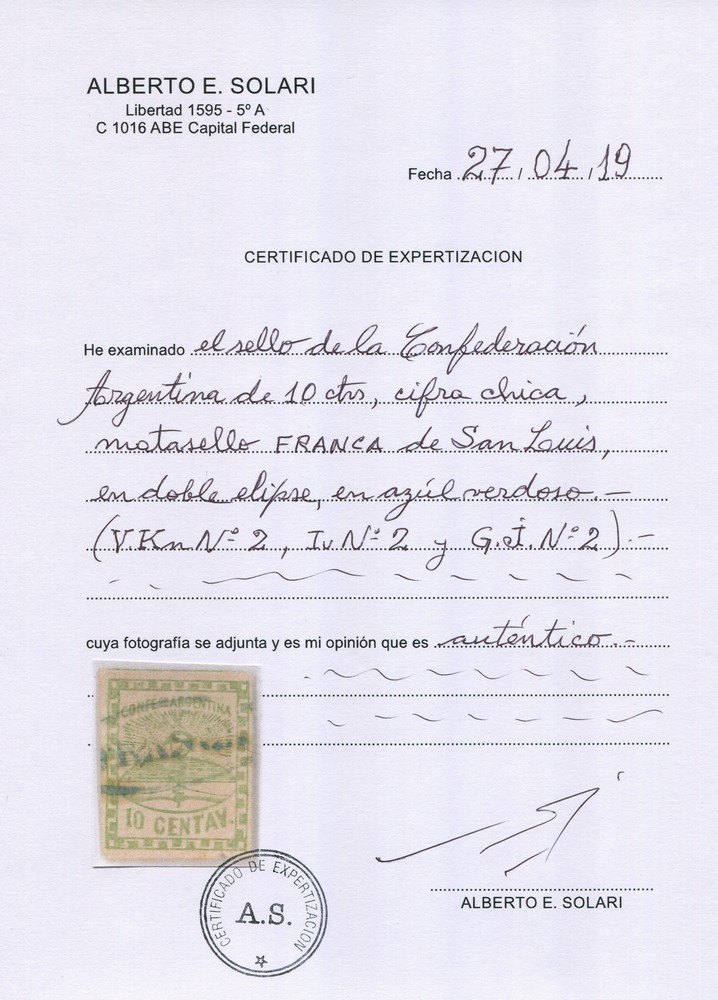 ALBERTO E. SOLARI
Libertad 1595 - 5º A
C 1016 ABE Capital Federal
Fecha 27 / 04 / 19
CERTIFICADO DE EXPERTIZACION
He examinado el sello de la Confederación
Argentina de 10 ctvs, cifra chica,
matasello FRANCA de San Luis,
en doble elipse, en azúl verdoso.-
(V.Kn Nº 2, Iv Nº 2 y G.J. Nº 2).-
cuya fotografía se adjunta y es mi opinión que es auténtico.-
CONFEON ARGENTINA
10 CENTAV.
CERTIFICADO DE EXPERTIZACION
A.S.
ALBERTO E. SOLARI